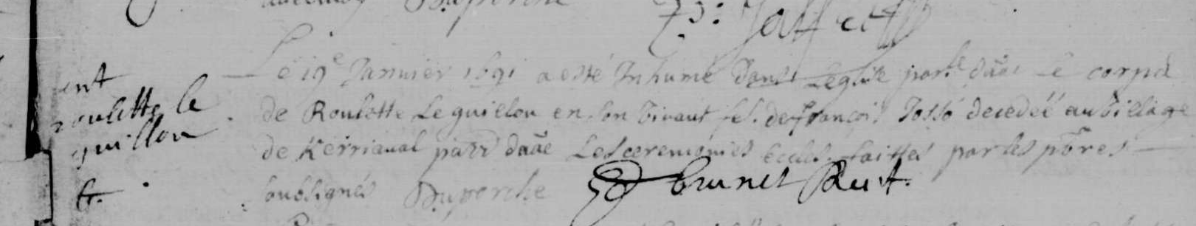 Duperche
ent
roulette le
guillou
Le 19e Janvier 1691 a esté Inhumé dans Leglise par.le dãe Le corps
de Roulette Le guillou en son vivant fe. de françois Jossó decedéé au village
de Kerriaual parr daãe Les ceremonies Eccles. faittes par les pb̃res
soubsignés Duperche Brunet Rect.